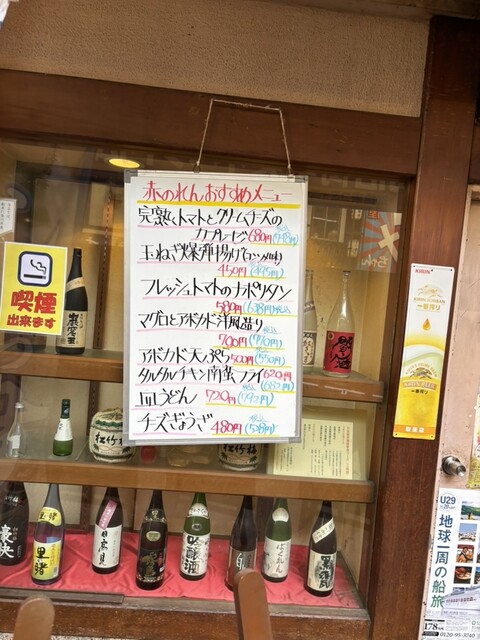 赤のれんおすすめメニュー
完熟トマトとクリームチーズの
カプレーゼ 680円(748円)
玉ねぎ爆弾揚げ
450円(495円)
フレッシュトマトのナポリタン
580円(638円)税込
マグロとアボカド洋風造り
700円(770円)税込
アボカド天ぷら500円(550円)
タルタルチキン南蛮フライ620円
税込(682円)
皿うどん 720円(792円)税込
チーズぎょうざ 480円(528円)税込
喫煙
出来ます
ちゃん
KIRIN
一番搾り
取扱店
松竹梅
豪快
里猪
日高見
吟醸酒
U29
地球一周の船旅
178
0120-95-3740